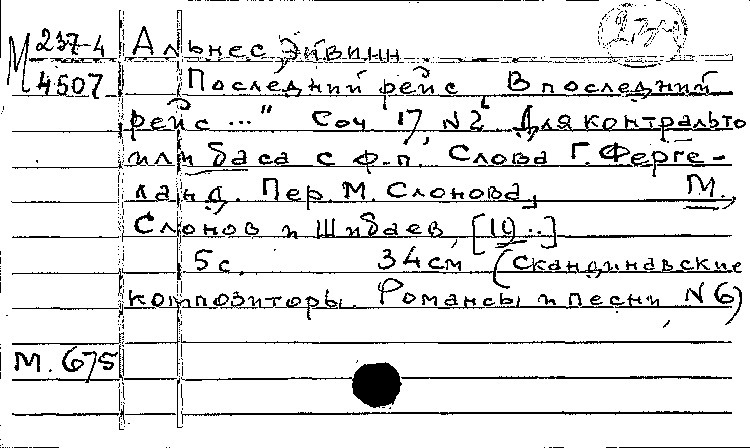 М 237-4 Альнес, Эйвинн
4507 Последний рейс „В последний
рейс ..." Соч 17, N2 Для контральто
или баса с ф.-п. Слова Г. Ферге-
ланд. Пер. М. Слонова, М.,
Слонов и Шибаев, [19..]
5 с. 34 см (Скандинавские
композиторы. Романсы и песни, N 6)
М. 675